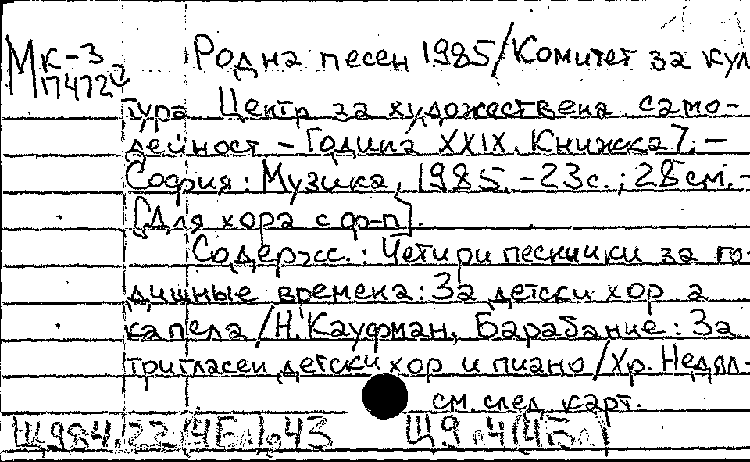 Мк-3
П4722
Родна песен 1985/Комитет за кул
тура Центр за художествена само-
дейност – Година XXIX. Книжка 7. –
София: Музика, 1985. – 23с.; 28см. –
[Для хора с ф-п].
Содерж.: Четири песнички за го-
дишные времена: За детски хор а
капела/Н. Кауфман, Барабание: За
тригласен детски хор и пиано/Хр. Недял-
см. след. карт.
Щ984.22(4Бл),43 Щ9.4(4Бл)